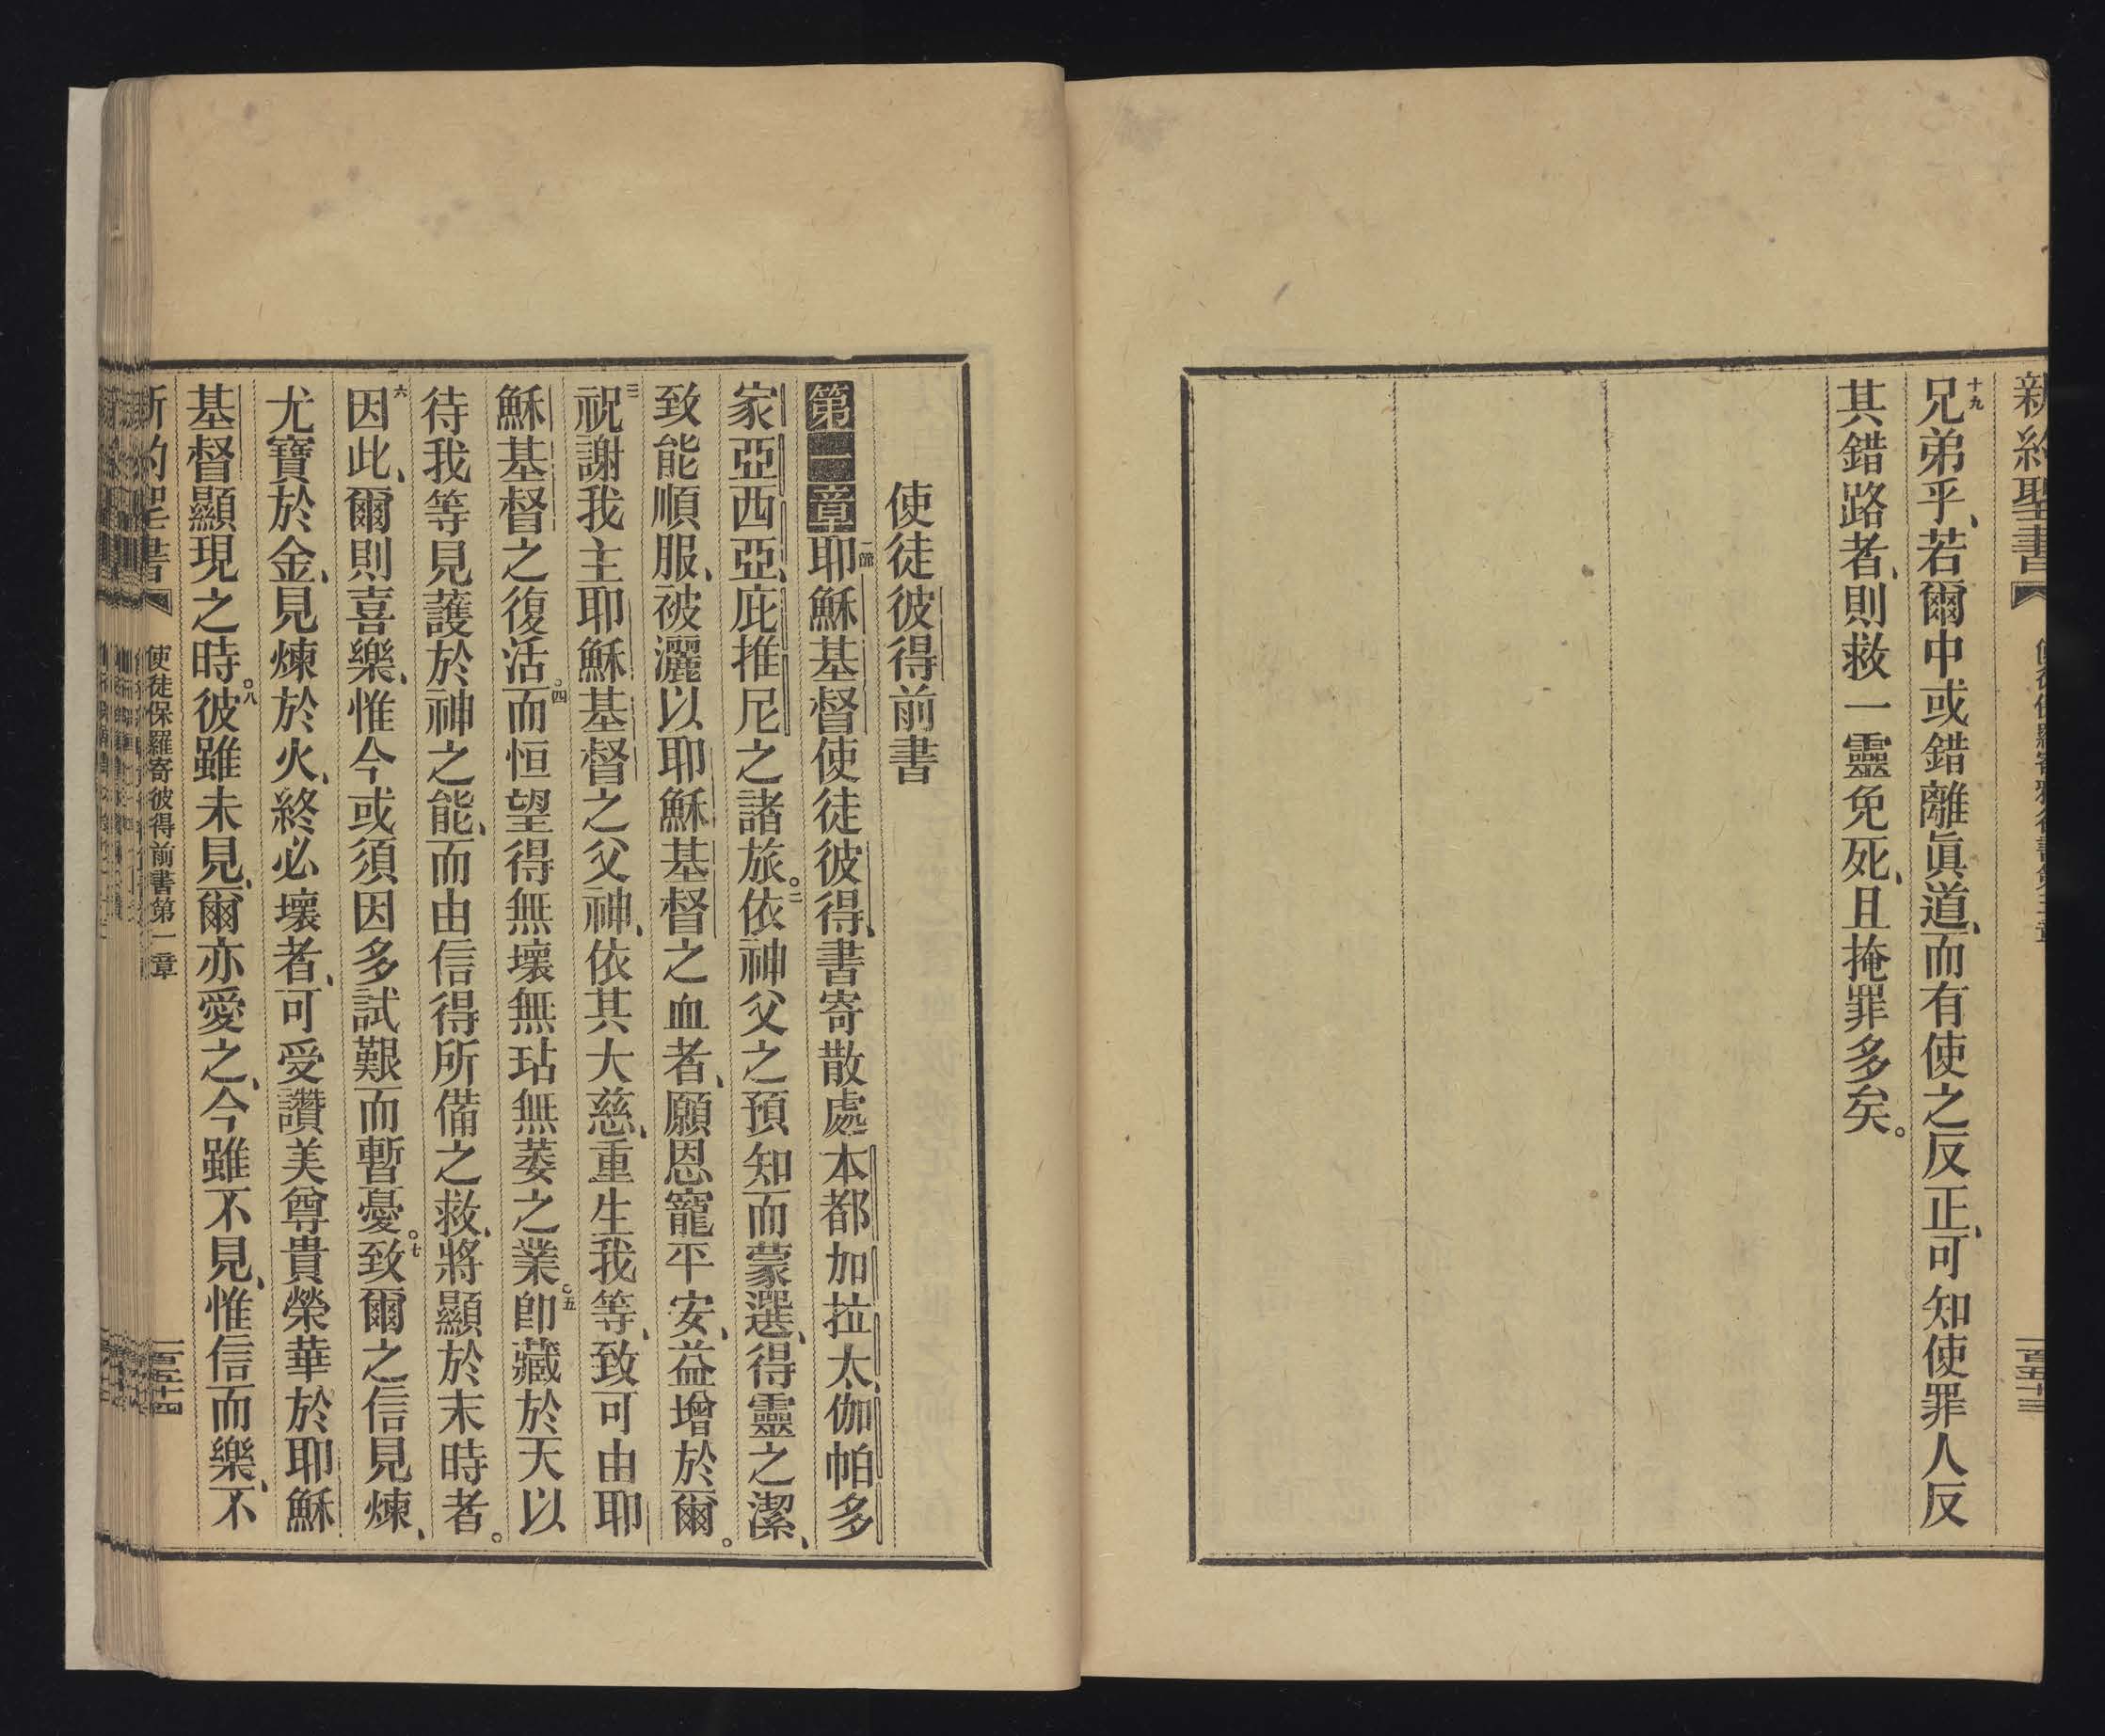 新約聖書
百五十三
十九兄弟乎、若爾中或錯離眞道、而有使之反正、可知使罪人反
其錯路者、則救一靈免死、且掩罪多矣。
使徒彼得前書
第一章一節耶穌基督使徒彼得、書寄散處本都加拉太、伽帕多
家亞西亞、庇推尼之諸旅。二依神父之預知而蒙選、得靈之潔、
致能順服、被灑以耶穌基督之血者、願恩寵平安、益增於爾。
三祝謝我主耶穌基督之父神、依其大慈、重生我等、致可由耶
穌基督之復活。四而恒望得無壞無玷無萎之業。五卽藏於天以
待我等見護於神之能、而由信得所備之救、將顯於末時者。
六因此、爾則喜樂、惟今或須因多試艱而暫憂。七致爾之信見煉、
尤寶於金、見煉於火、終必壞者、可受讚美尊貴榮華於耶穌
基督顯現之時。八彼雖未見、爾亦愛之、今雖不見、惟信而樂、不
新約聖書
使徒保羅寄彼得前書第一章
百五十四